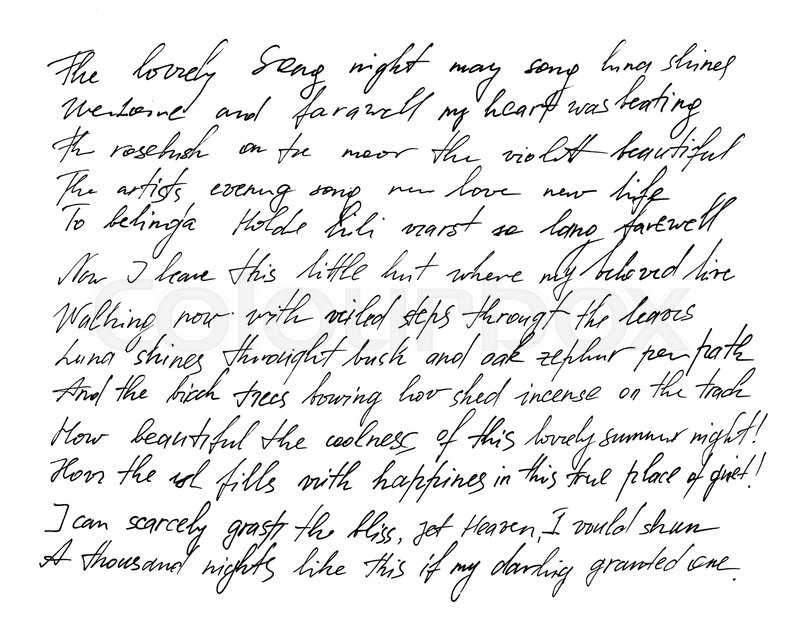 The lovely Song night may song luna shines
Welcome and farawell my heart was beating
Th rosebush on the moor the violett beautiful
The artists evening song new love new life
To belinda Holde Lili warst so long farewell
Now I leave this little hut where my beloved live
Walking now with veiled steps througt the leavs
Luna shines throught bush and oak zephur per path
And the birch trees bowing hov shed incense on the track
How beautiful the coolness of this lovely summer night!
How the fills with happines in this true place of quiet!
I can scarcely grasp the bliss, yet Heaven, I would shun
A thousand nights like this if my darling granted one.
COLOURBOX